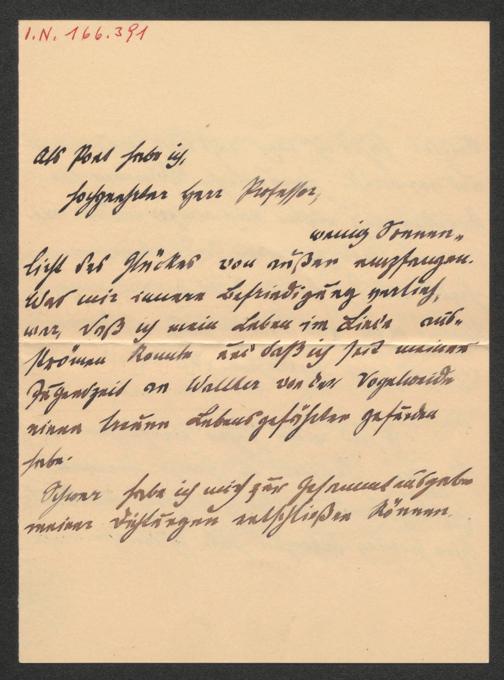 I.N. 166.391
Als Poet habe ich,
hochgeehrter Herr Professor,
wenig Sonnen-
licht des Glückes von außen empfangen.
Was mir innere Befriedigung verlieh,
war, daß ich mein Leben im Liede aus-
strömen konnte und daß ich seit meiner
Jugendzeit an Walther von der Vogelweide
einen treuen Lebensgefährten gefunden
habe.
Schwer habe ich mich zur Gesammtausgabe
meiner Dichtungen entschließen können.